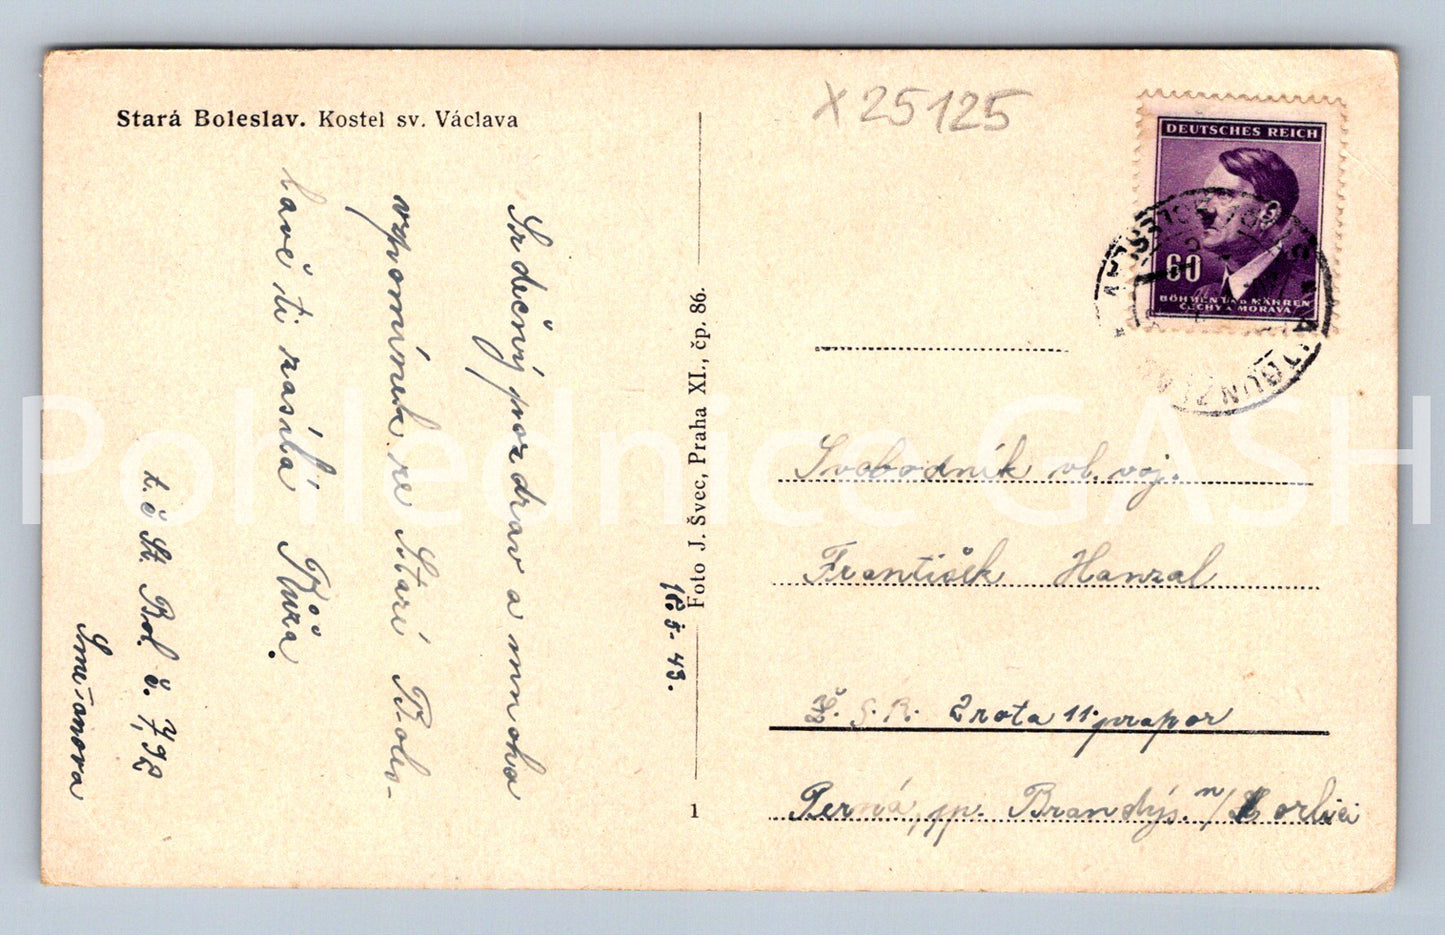 Stará Boleslav. Kostel sv. Václava
X 25125
DEUTSCHES REICH
60
BÖHMEN UND MÄHREN
ČECHY A MORAVA
Srdečný pozdrav a mnoho
vzpomínek ze Staré Boles-
lavě ti zasílá Růža.
t. č St. Bol. č. 7,92
16 5. 43.
Foto J. Švec, Praha XI., čp. 86.
1
Svobodník vl. voj.
František Hanzal
2 rota 11. prapor
Perná, pp. Brandýs. n/ orlicí
Pohlednice GASH